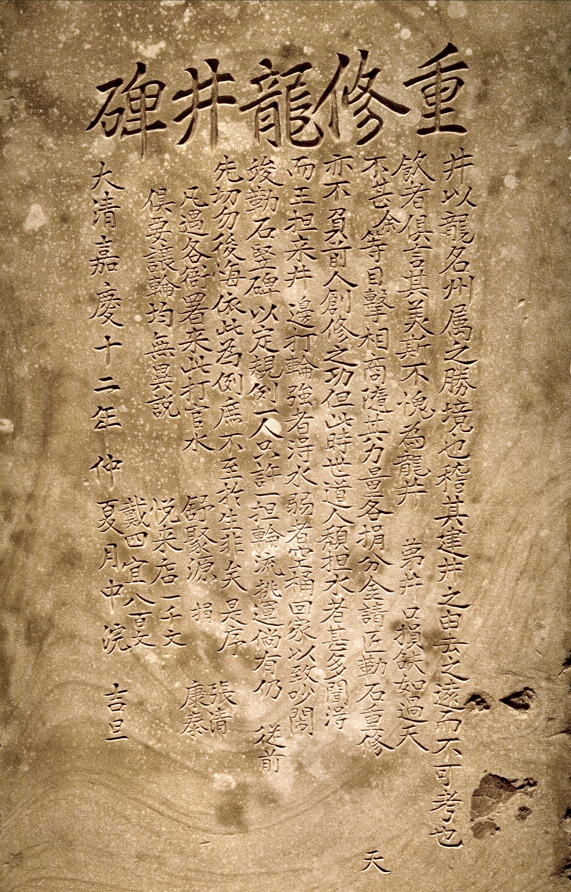 重修龍井碑
井以龍名州属之勝境也稽其建井之由去之遠而不可考也
飲者俱言其美斯不愧為龍井 苐井口損缺如過天
不甚 等目擊相商隨其力量各捐分金請匠勒石重修 天
亦不負前人創修之功但此時世道人頹担水者甚多聞得
而王担来井邊打輪強者得水弱者空桶回家以致吵鬧
竣勒石竪碑以定規例一人只許一担輪流挑運倘有仍 從前
先切勿後海依此為例庶不至於生非矣是序 張清
凡遇各衙署来此打官水 舒聚源 捐 康泰
俱要議輪均無異說 悅来店一千文
戴四宜八百文
大清嘉慶十二年仲夏月中浣 吉旦